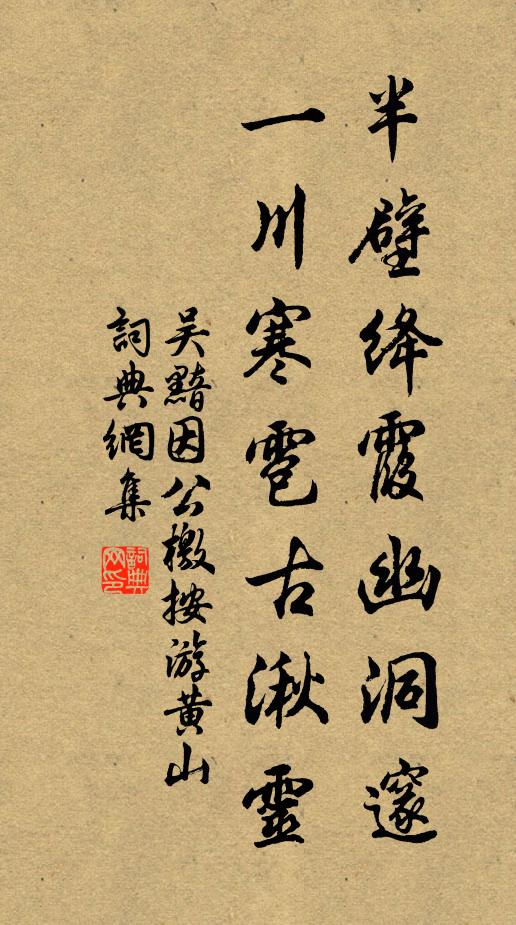 半壁絳霞幽洞邃
一川寒雹古湫靈
吴黯因公檄按游黄山
詞典網集
詞典网印